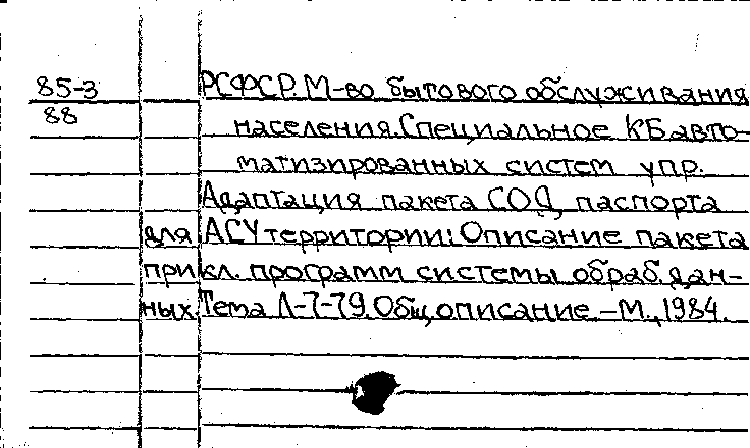 85-3
88
РСФСР. М-во бытового обслуживания
населения. Специальное КБ авто-
матизированных систем упр.
Адаптация пакета СОД паспорта
для АСУ территории: Описание пакета
прикл. программ системы обраб. дан-
ных. Тема Л-7-79. Общ. описание. – М., 1984.